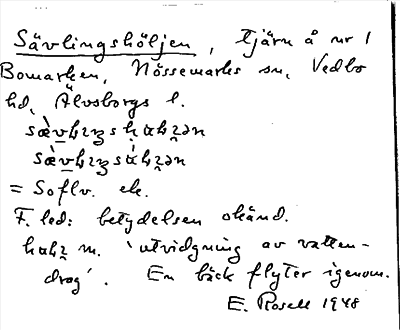 Sävlingshöljen, tjärn å nr 1
Bomarken, Nössemarks sn, Vedbo
hd, Älvsborgs l.
= Soflv. ek.
F. led: betydelsen okänd.
m. 'utvidgning av vatten-
drag'. En bäck flyter igenom.
E. Rosell 1948